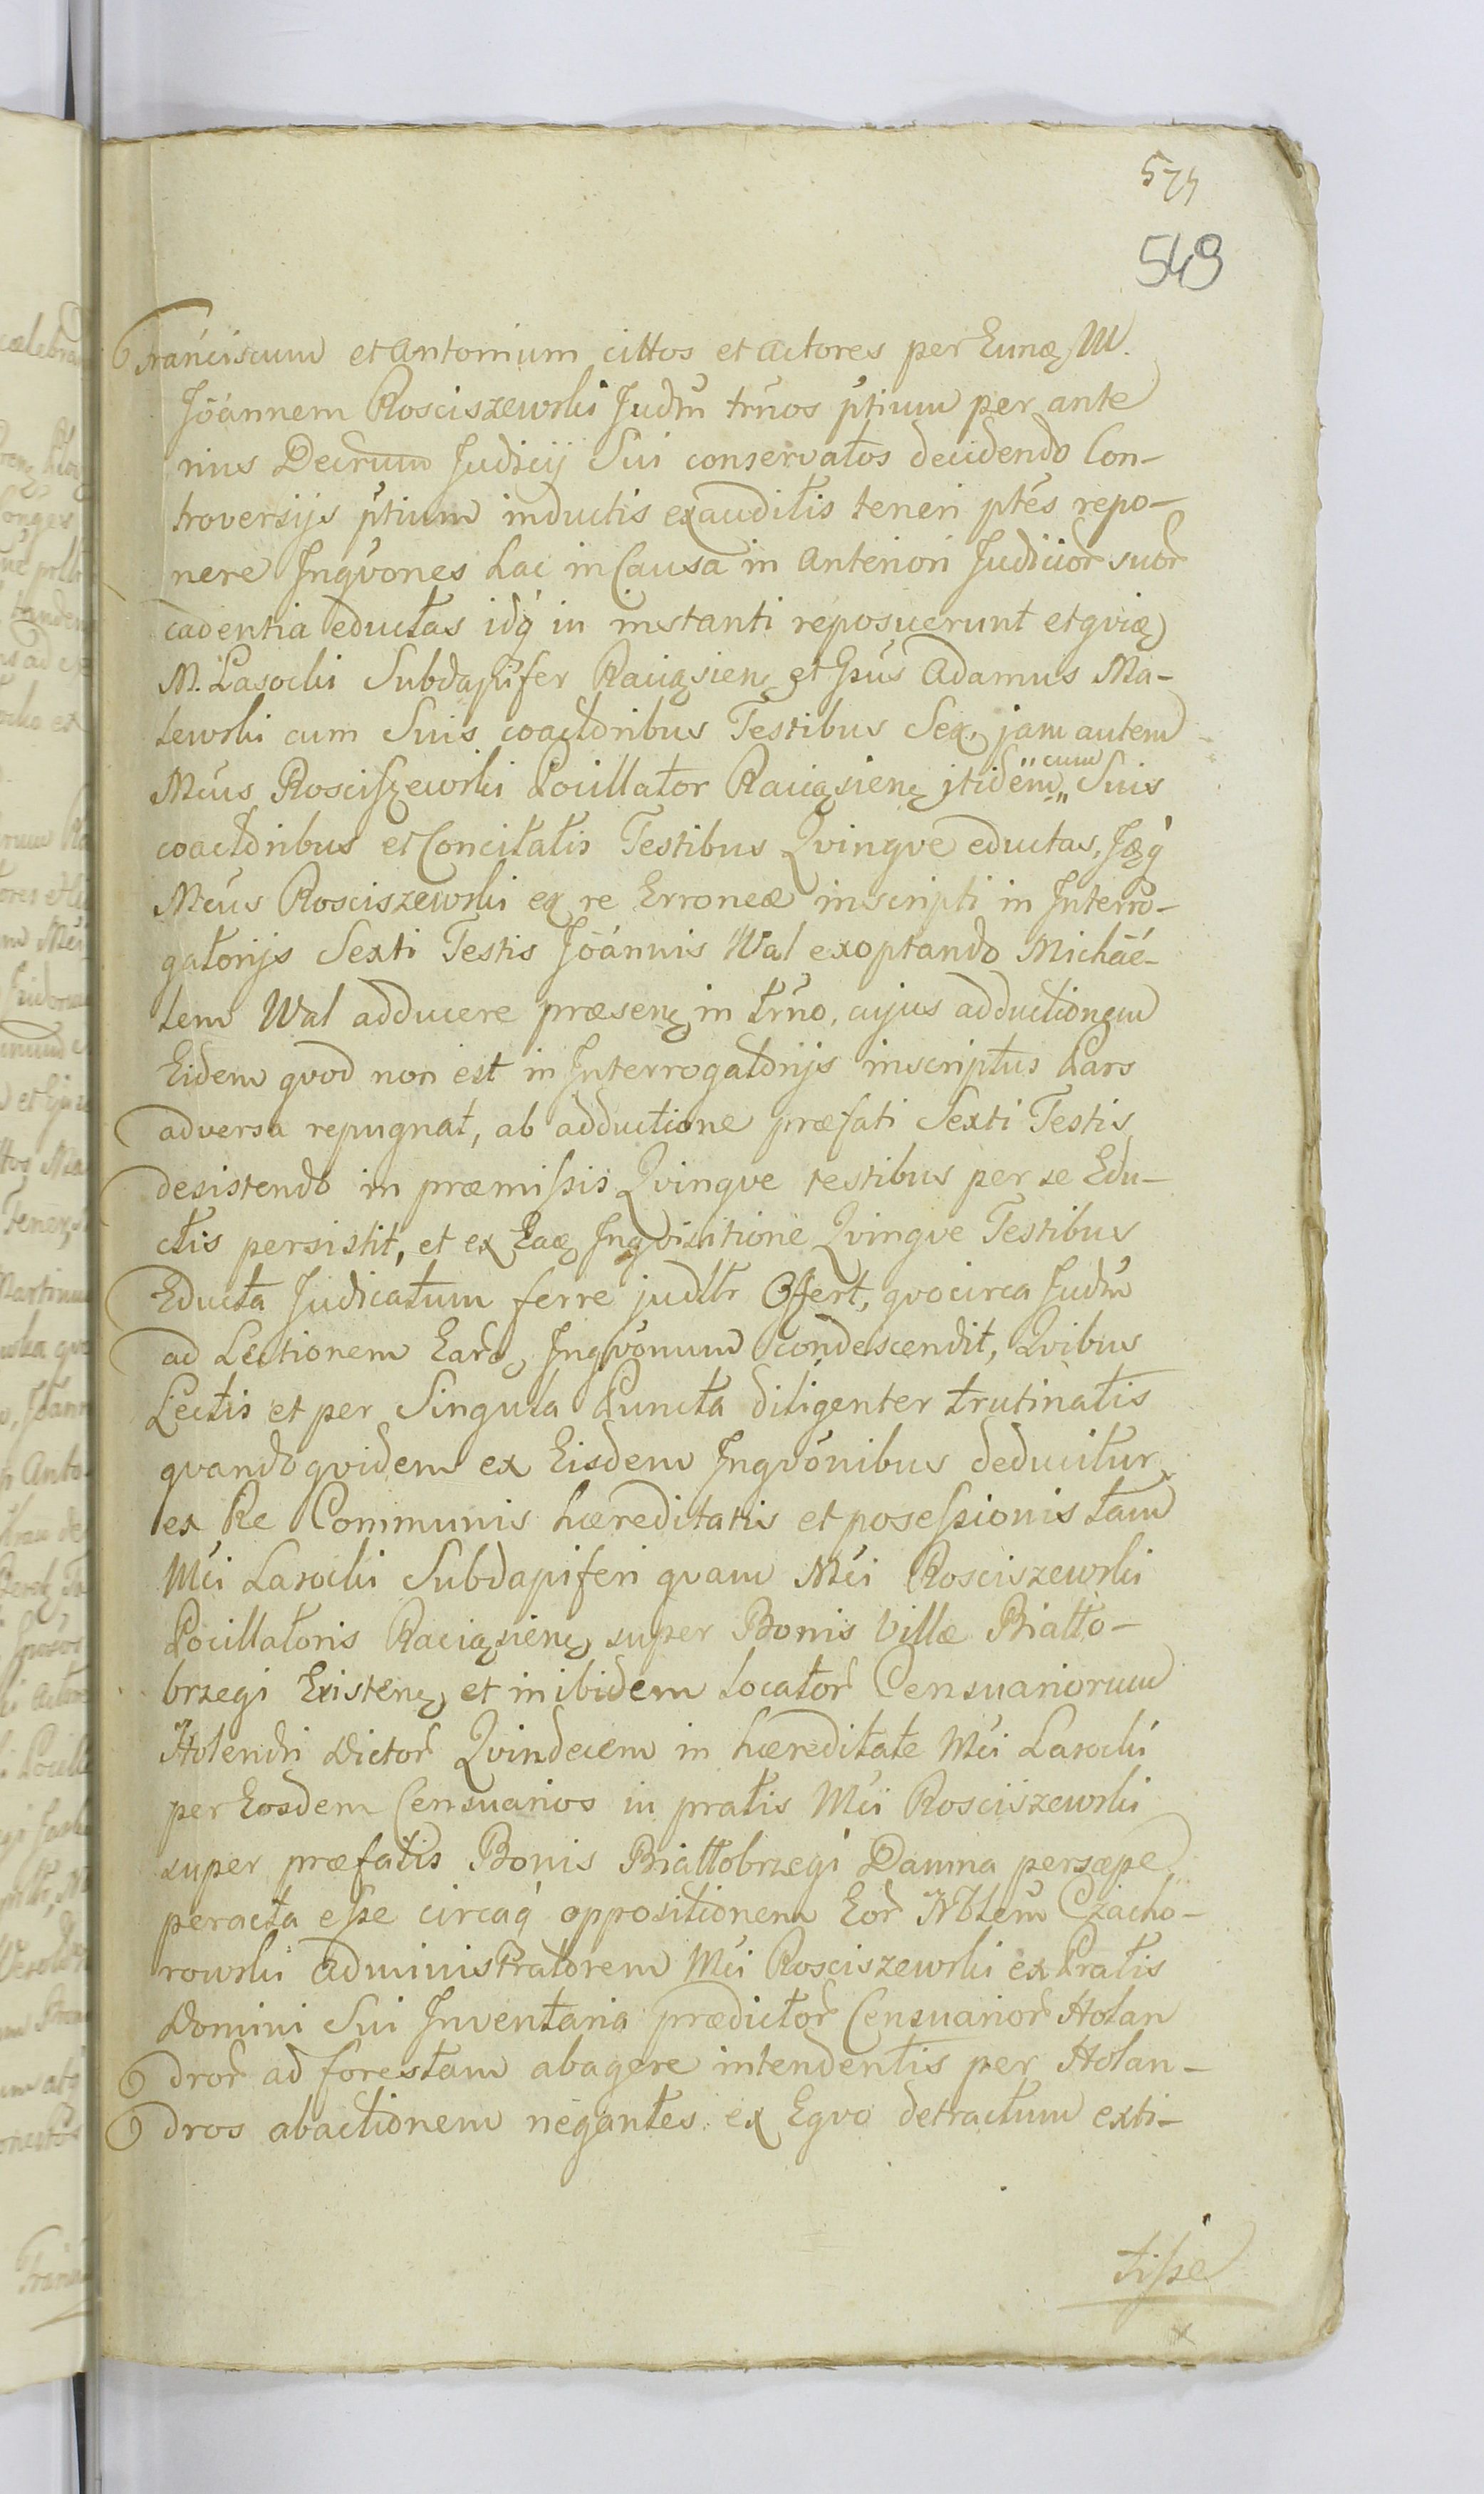 574
549
Franciscum et Antonium cittos et Actores per Eunđ M.
Joannem Rosciszewski Judm trnos ptium per ante
rius Decrum Judicij Sui conservatos decidendo Con-
troversijs ptium inductis exauditis teneri ptes repo-
nere Inqvones hac in Causa in Anteriori Judicior suor
cadentia eductas idq in instanti reposuerunt et qvia
M. Lasocki Subdapifer Raciąsien et Gsus Adamus Ma-
lewski cum Suis coactoribus Testibus Sex, jam autem
Mcus Rosciszewski Pocillator Raciąsien itidem cum Suis
coactoribus et Concitatis Testibus Qvinqve eductas, Itaq
Mcus Rosciszewski ex re Erroneæ inscripti in Interro-
gatorijs Sexti Testis Joannis Wal exoptando Michaé-
lem Wal adducere præsen in trno, cujus adductionem
Eidem qvod non est in Interrogatorijs inscriptus Pars
adversa repugnat, ab adductione præfati Sexti Testis
desistendo in præmissis Qvinqve testibus per se Edu-
ctis persistit, et ex Ead Inqvisitione Qvinqve Testibus
Educta Judicatum ferre judltr Offert, qvocirca Judm
ad Lectionem Eard Inqvonum condescendit, Qvibus
Lectis et per Singula Puncta diligenter trutinatis
qvandoqvidem ex Eisdem Inqvonibus deducitur
ex Re Communis hæreditatis et posessionis tam
Mci Lasocki Subdapiferi qvam Mci Rosciszewski
Pocillatoris Raciąsien super Bonis Villæ Biatto-
brzegi Existen et inibidem locator Censuariorum
Holendri Dictor Qvindecem in hæreditate Mci Lasocki
per Eosdem Censuarios in pratis Mci Rosciszewski
super præfatis Bonis Biattobrzegi Damna persæpe
peracta esse circaq oppositionem Eor Nblem Czacho-
rowski Administratorem Mci Rosciszewski ex Pratis
Domini Sui Inventaria prædictor Censuarior Holan
dror ad forestam abagere intendentis per Holan-
dros abactionem negantes ex Eqvo detractum exti-
tisse